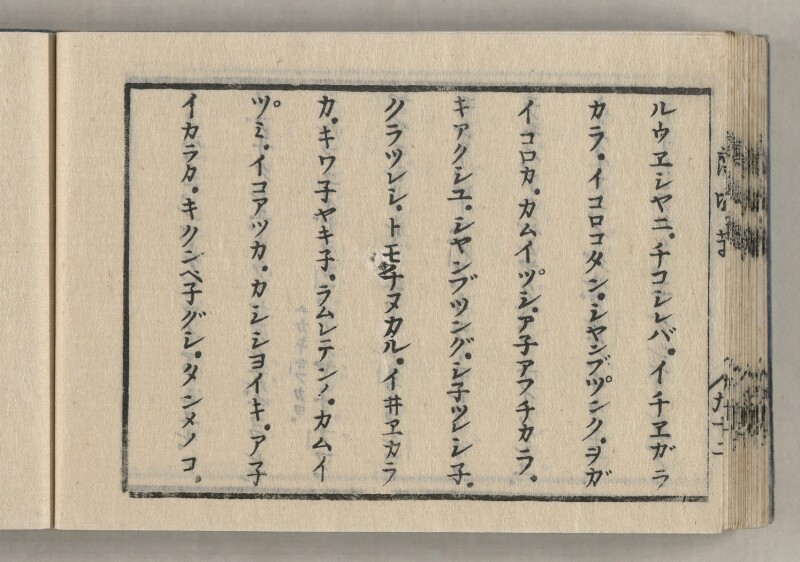 ルウヱシヤニ。チコシレバ。イチヱガラ
カラ。イコロコタン。シヤンブツ゚ンク。ヲガ
イコロカ。カムイツ゚シ。ア子アフチカラ。
キアクシユ。シヤンブツング。シ子ツレシ子。
クラツレシ。トモチヌカル。イ井ヱカラ
カ。キワ子ヤキ子。ラムレテンノ。カムイ
ツ゚ミ。イコアツカ。カシシヨイキ。ア子
イカラカ。キクンベ子グシ。タンメノコ。